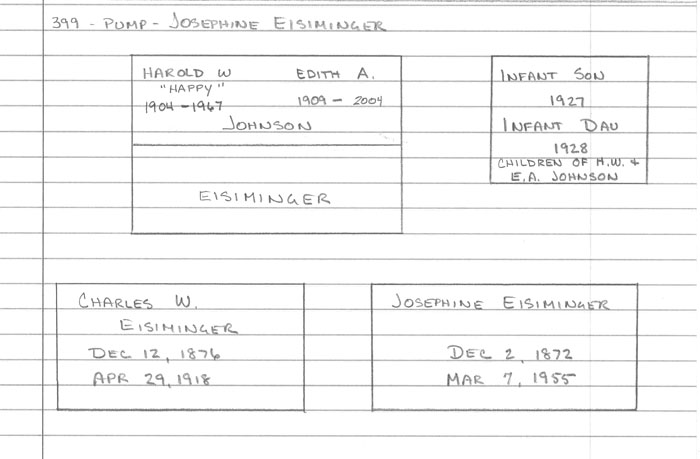 399 - PUMP - JOSEPHINE EISIMINGER
HAROLD W EDITH A.
"HAPPY"
1904 - 1967 1909 - 2004
JOHNSON
EISIMINGER
INFANT SON
1927
INFANT DAU
1928
CHILDREN OF H.W. &
E.A. JOHNSON
CHARLES W.
EISIMINGER
DEC 12, 1876
APR 29, 1918
JOSEPHINE EISIMINGER
DEC 2, 1872
MAR 7, 1955